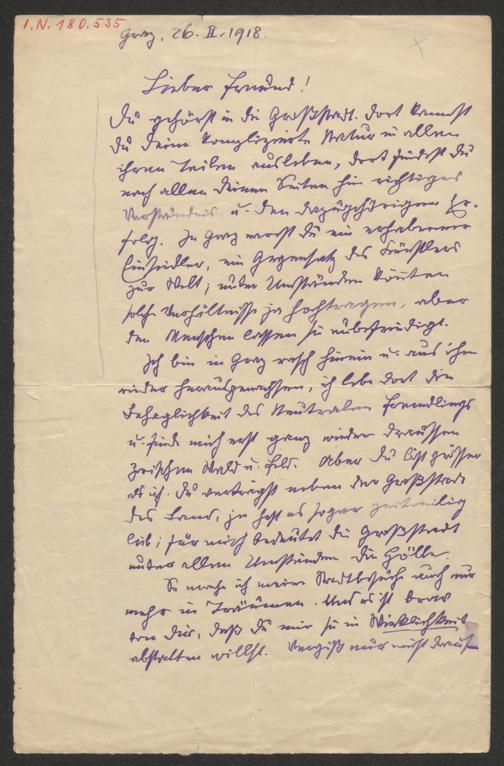 I.N. 180.535
Graz, 26. II. 1918.
Lieber Freund!
Du gehörst in die Großstadt. Dort kannst
Du Deine komplizierte Natur in allen
ihren Teilen ausleben, dort findest Du
nach allen Deinen Seiten hin richtiges
Verständnis u. den dazugehörigen Er-
folg. In Graz warst Du ein erhabener
Einsiedler, ein Gegensatz des Künstlers
zur Welt; unter Umständen könnten
solche Verhältnisse ja hochtragen, aber
den Menschen lassen sie unbefriedigt.
Ich bin in Graz rasch hinein u. aus ihm
wieder herausgewachsen, ich lebe dort die
Behaglichkeit des neutralen Fremdlings
u. finde mich erst ganz wieder draussen
zwischen Wald u. Feld. Aber Du bist grösser
als ich. Du verträgst neben der Großstadt
das Land, ja hast es sogar zeitweilig
lieb; für mich bedeutet die Großstadt
unter allen Umständen die Hölle.
So mache ich meine Stadtbesuche auch nur
mehr in Träumen. Und es ist brav
von Dir, daß Du mir sie in Wirklichkeit
abstatten willst. Vergiß nur nicht drauf